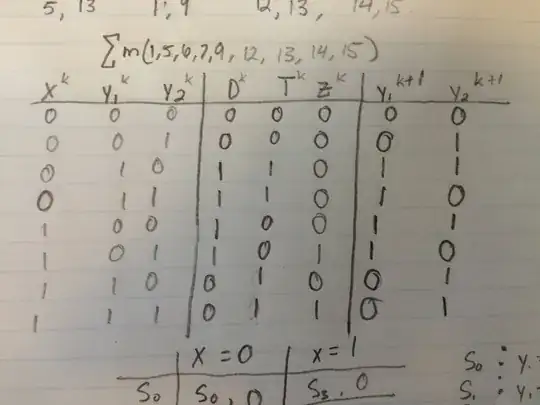 5, 13 1, 9 12, 13, 14, 15
∑m(1,5,6,7,9, 12, 13, 14, 15)
X^k Y₁^k Y₂^k D^k T^k Z^k Y₁^k+1 Y₂^k+1
0 0 0 0 0 0 0 0
0 0 1 0 0 0 0 1
0 1 0 1 1 0 1 1
0 1 1 1 1 0 1 0
1 0 0 1 0 0 1 1
1 0 1 1 0 1 1 0
1 1 0 0 1 0 0 1
1 1 1 0 1 1 0 1
x = 0 x = 1
S₀ S₀, 0 S₃, 0 S₀ : y₁
S₁ : y₁